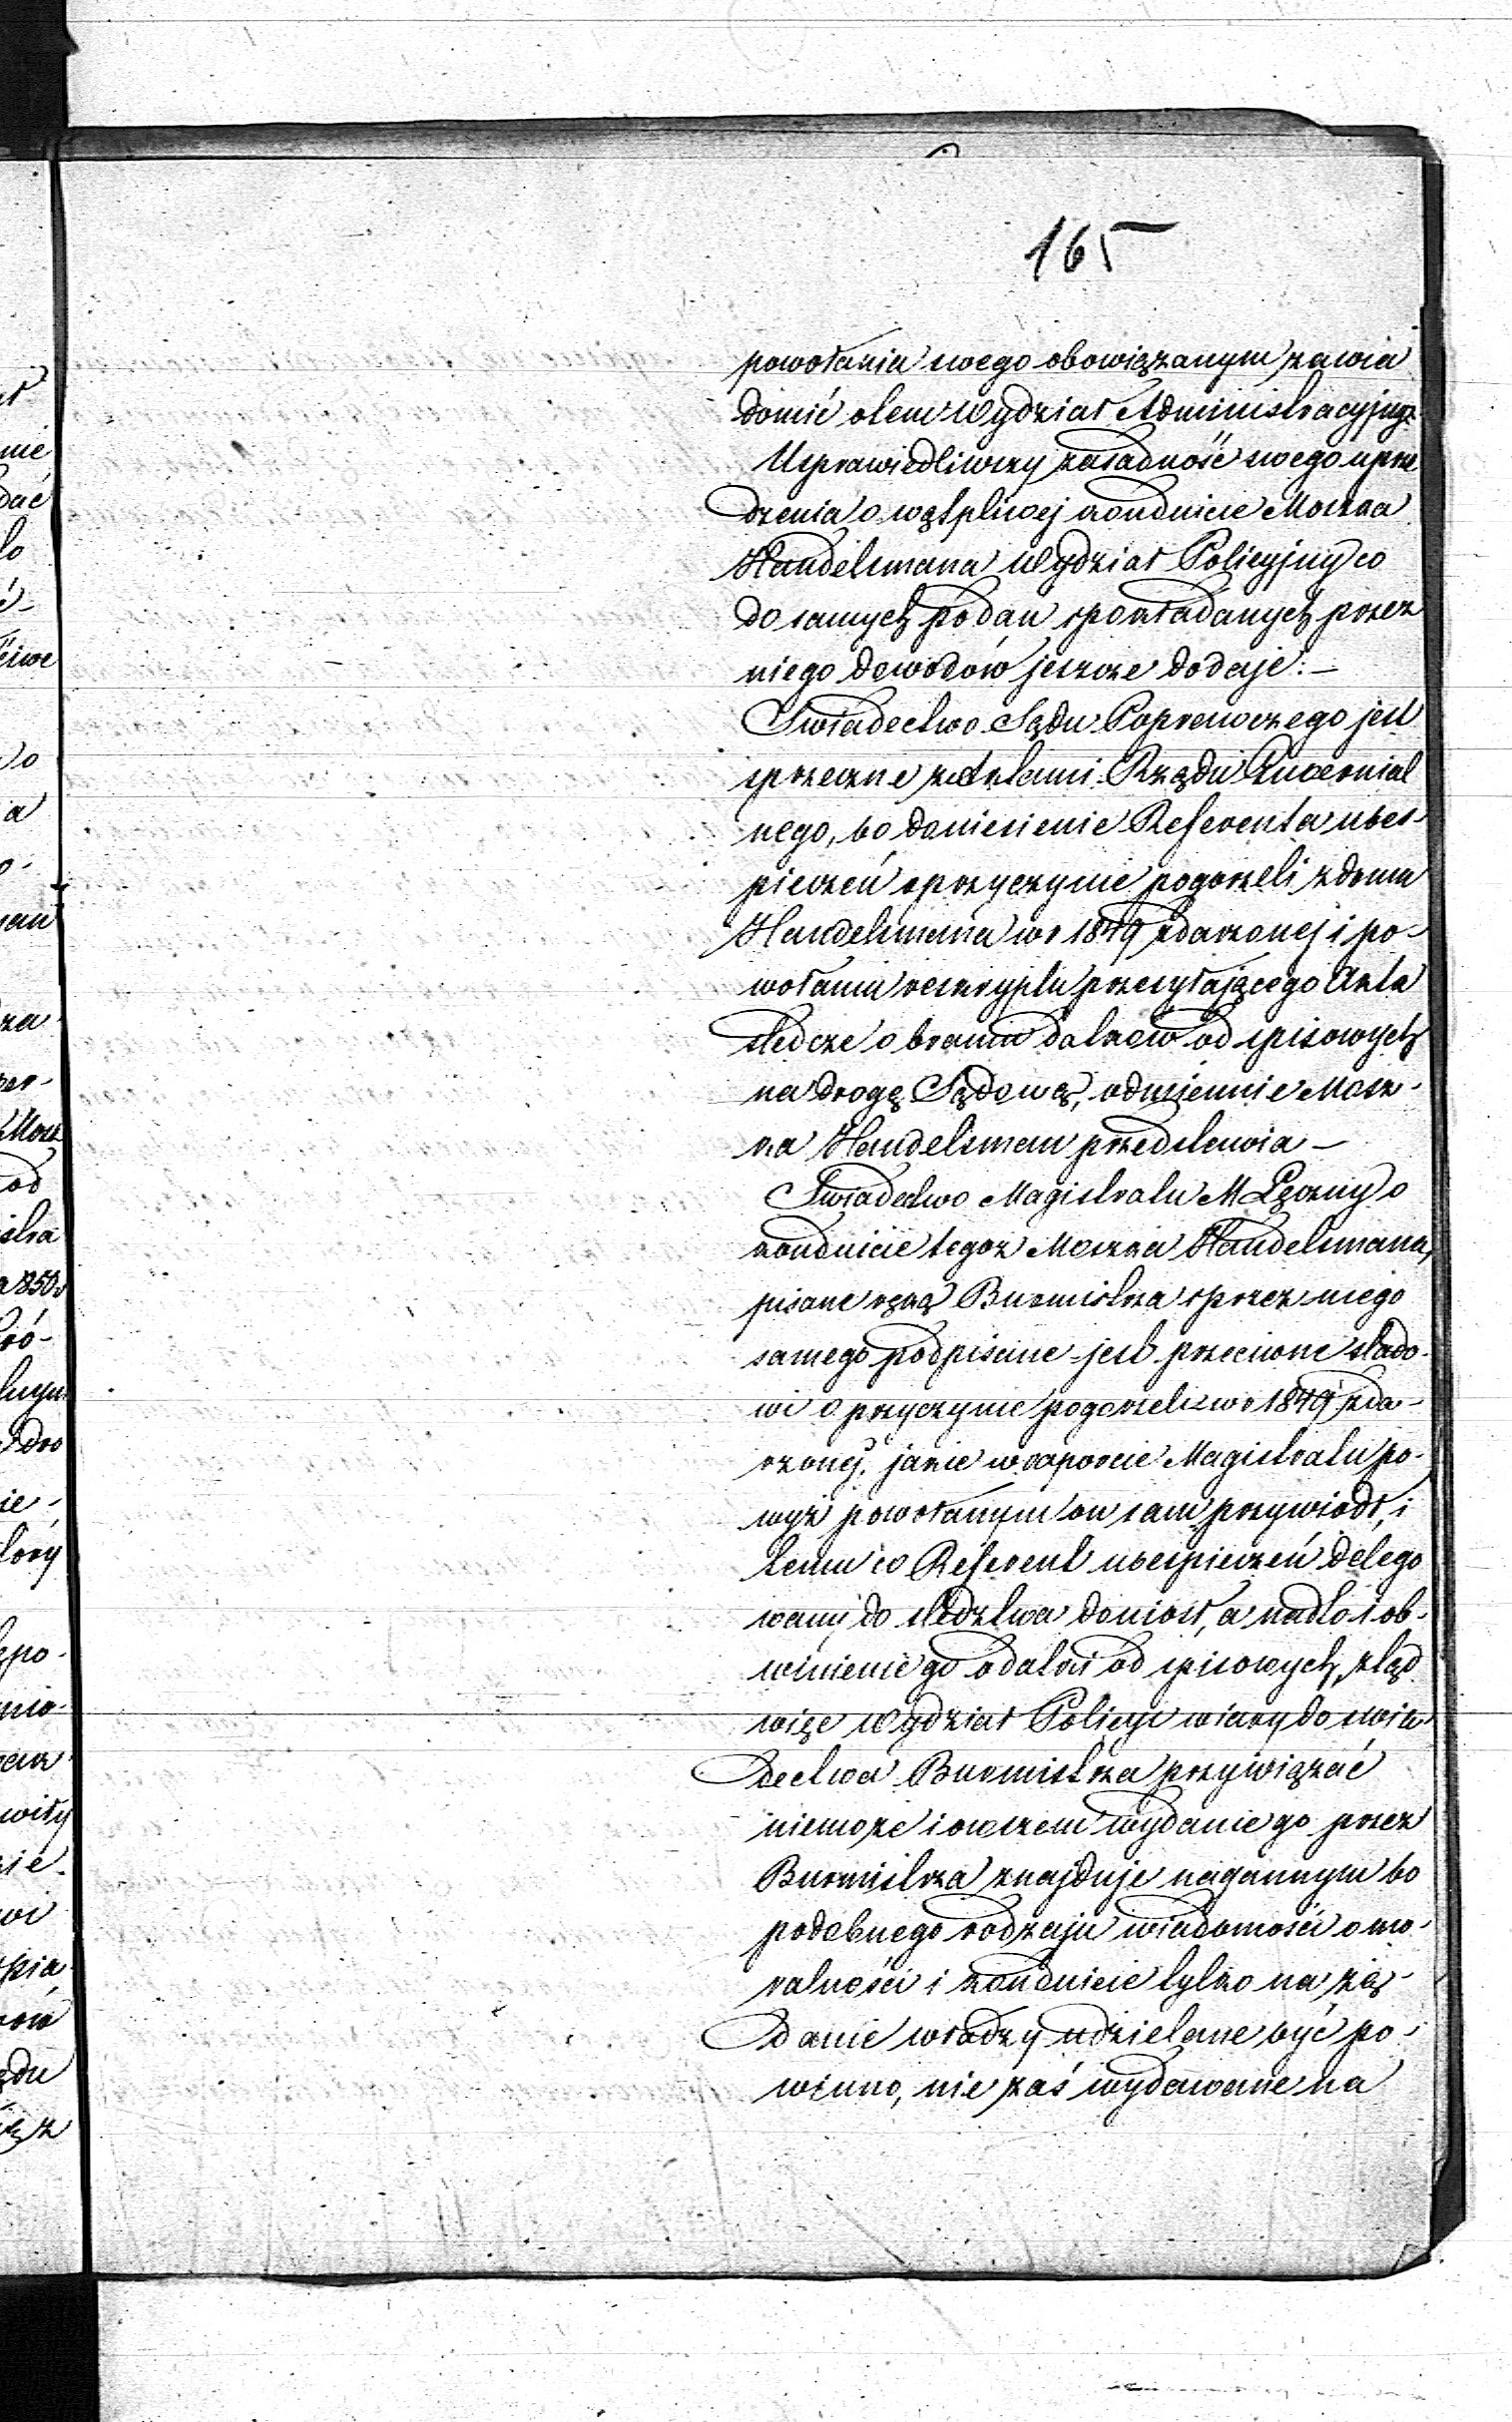 165
powołania swego obowiązanym zawia
domić o tem Wydział Administracyjny.
Usprawiedliwszy zasadność swego uprze
dzenia o wątpliwej konduicie Moszka
Handelsmana Wydział Policyjny co
do samych podań i poskładanych przez
niego dowodów jeszcze dodaje: —
Swiadectwo Sądu Poprawczego jest
sprzeczne z Aktami Rządu Gubernial
nego, bo doniesienie Referenta ubes-
pieczeń o przyczynie pogorzeli z domu
Handelsmana w r 1849 zdarzonej i po-
wołaniu reskryptu przesyłającego Akta
śledcze o braniu datków od spisowych
na drogę Sądową, odmiennie Mosz-
ka Handelsman przedstawia —
Swiadectwo Magistratu M Łęczny o
konduicie tegoż Moszka Handelsmana,
pisane ręką Burmistrza i przez niego
samego podpisane jest przeciwne śladó-
wi o przyczynie pogorzeli w r 1849 zda-
rzonej, jakie w raporcie Magistratu po-
wyż powołanym on sam przywiódł, i
temu co Referent ubespieczeń delego
wany do śledztwa doniósł, a nadto i ob-
winienie go o datki od spisowych, ztąd
więc Wydział Policyi wiary do swia-
dectwa Burmistrza przywiązać
niemoże i owszem wydanie go przez
Burmistrza znajduje nagannym bo
podobnego rodzaju wiadomości o mo-
ralności i konduicie tylko na żą-
danie władzy udzielane być po-
winno, nie zaś wydawane na